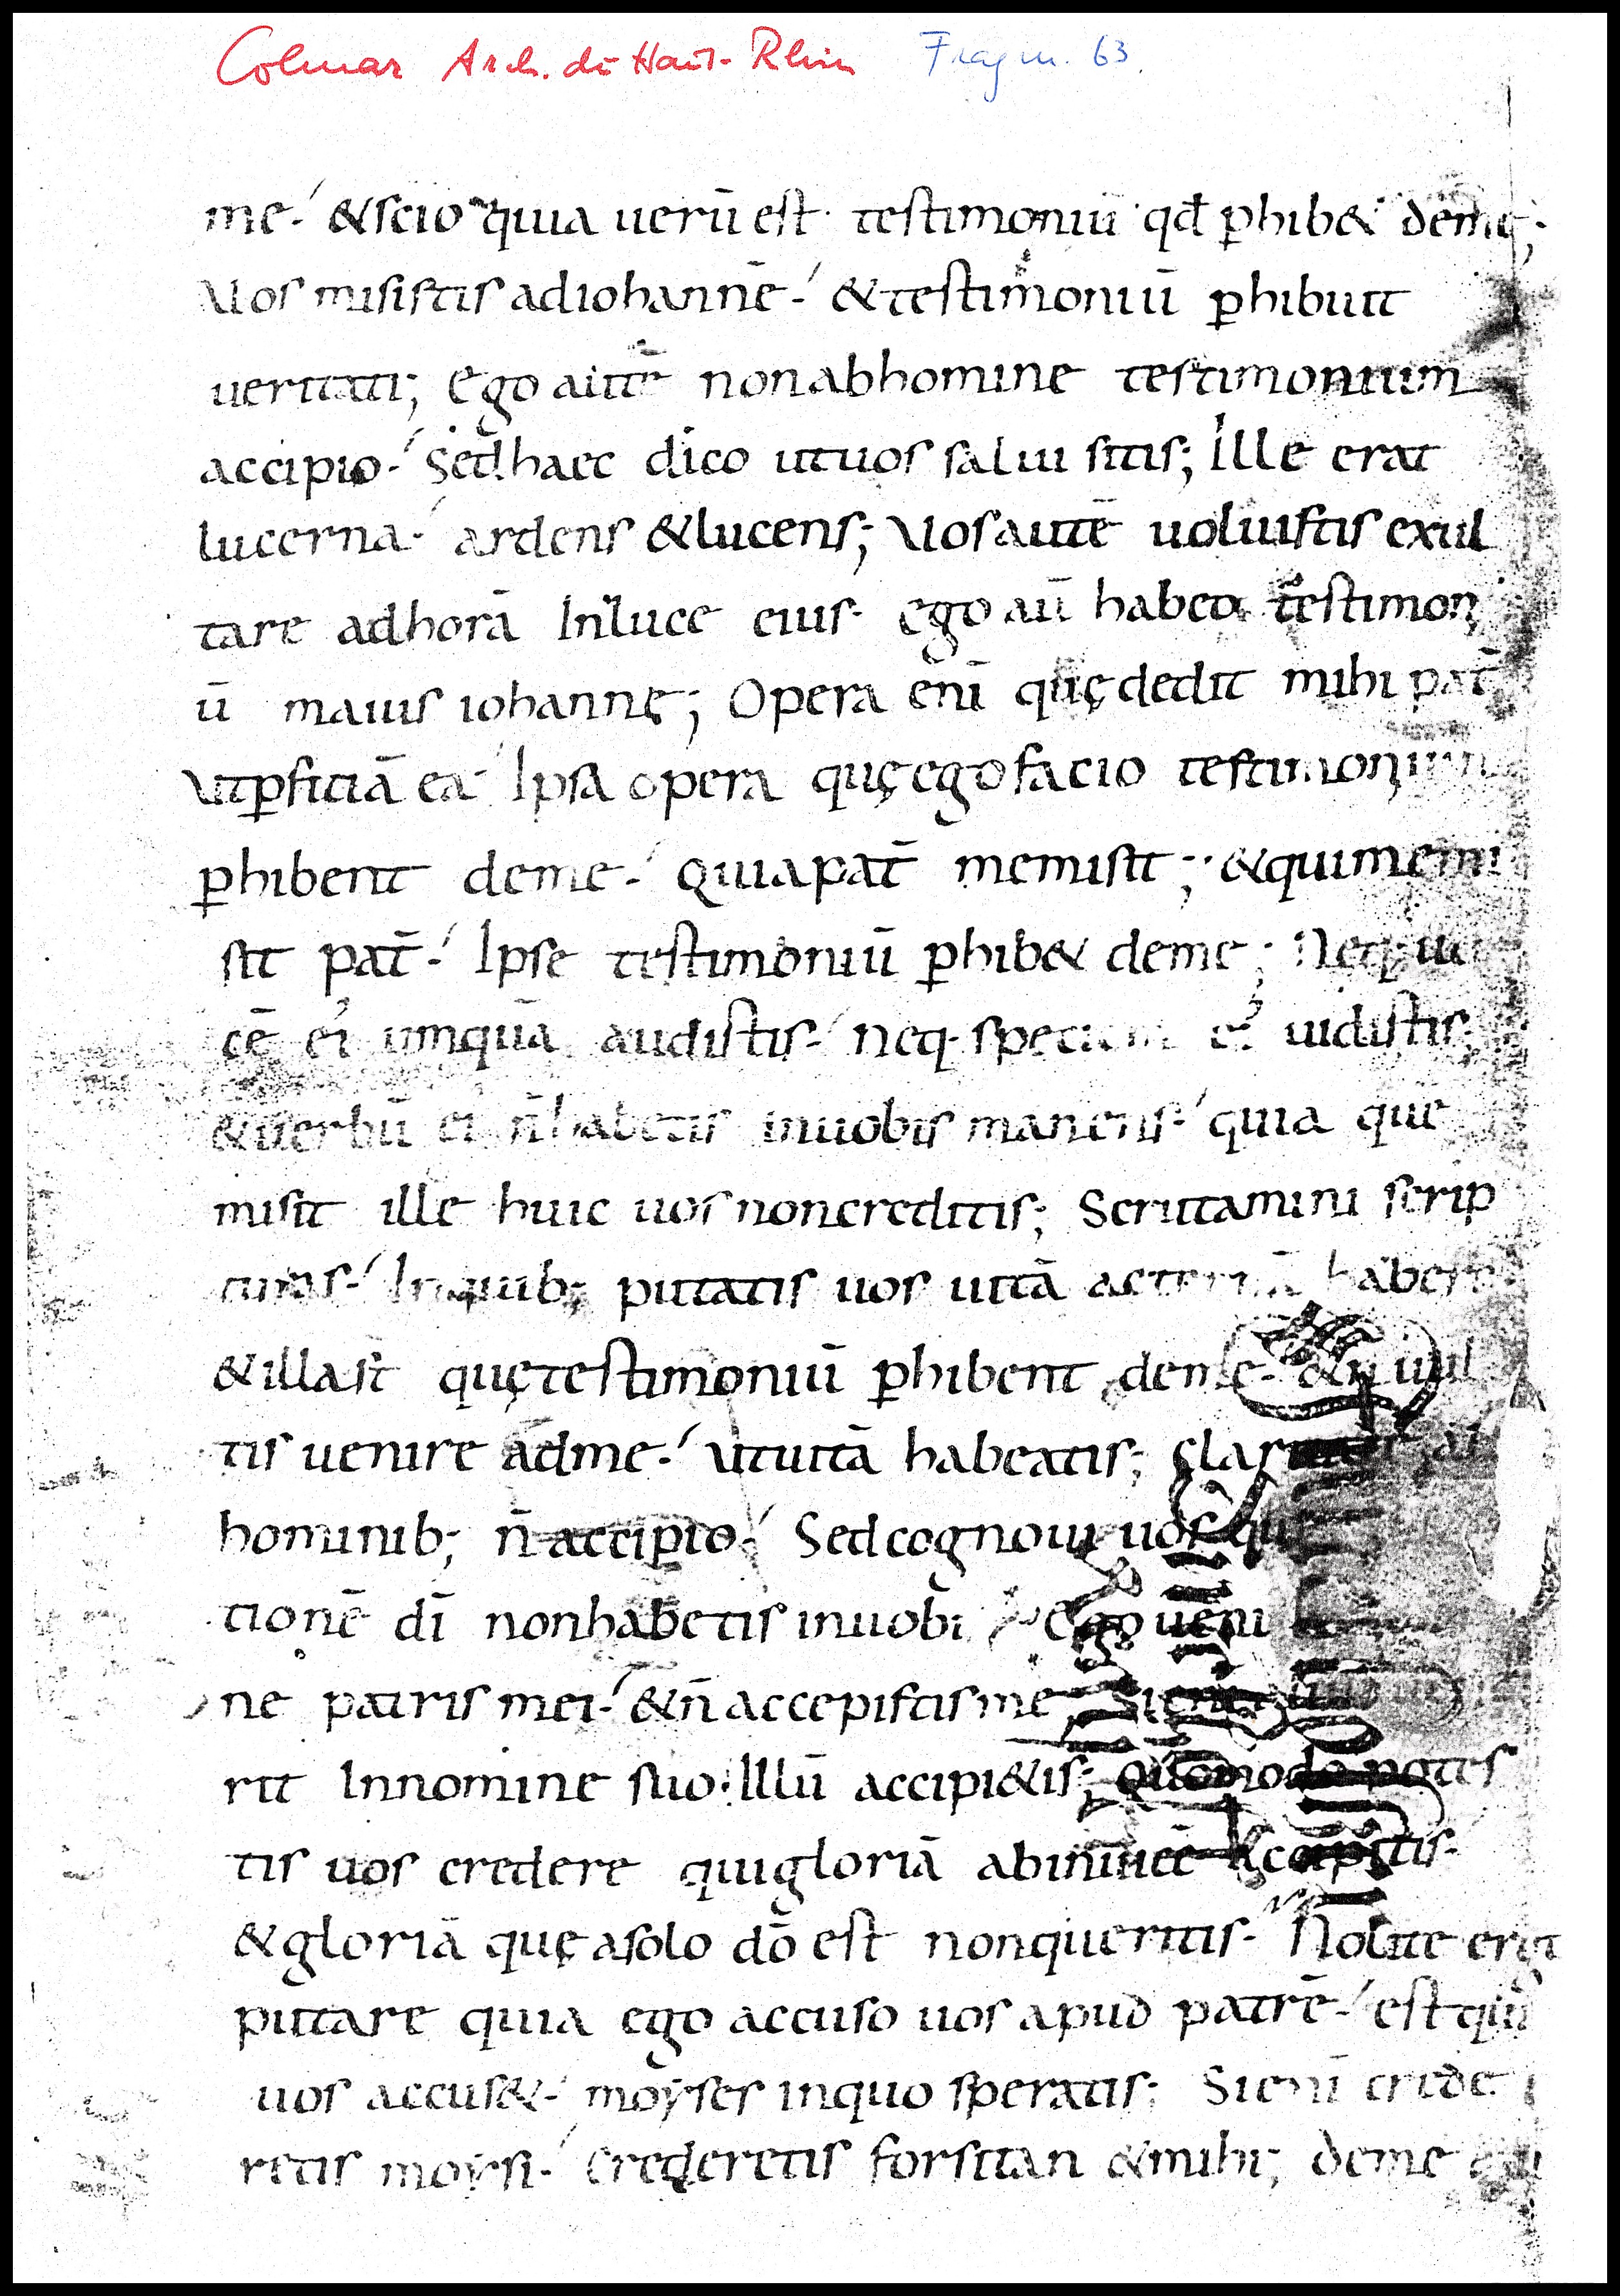 Colmar Arch. du Haut-Rhin Fragm. 63.
me· &scio quia uerū est· testimoniū qđ ꝑhib& deme;
Uos misistis adiohannē· & testimoniū ꝑhibuit
ueritati; Ego autē non abhomine testimonium
accipio· Sed haec dico utuos salui sitis; Ille erat
lucerna· ardens &lucens; Uos autē uoluistis exul
tare adhorā Inluce eius· ego aū habeo testimoni
ū maius iohannę; Opera enī quę dedit mihi pat̄
Utꝑficiā ea· Ipsa opera quę ego facio testimonium
ꝑhibent deme· Quia pat̄ memisit; &quimemi
sit pat̄· Ipse testimoniū ꝑhib& deme; Neq· uo
cē ei umquā audistis· neq· speciem ei uidistis;
&uerbū ei n̄ habetis inuobis manens· quia quē
misit ille huic uos noncreditis; Scrutamini scrip
turas· Inquib; putatis uos uitā aeternā habere
&illa st̄ quę testimoniū ꝑhibent deme· &n̄ uul
tis uenire adme· Utuitā habeatis; Claritatē ab
hominib; n̄ accipio· Sed cognoui uos
tionē dī nonhabetis inuobi Ego ueni
ne patris mei· &n̄ accepistis me
rit Innomine suo· Illū accipi&is; Quomodo potes
tis uos credere qui gloriā abinuicē accipitis·
&gloriā quę asolo dō est nonqueritis· Nolite
putare quia ego accuso uos apud patrē· est qui
uos accus&· moyses inquo speratis; Si enī crede
retis moysi· Crederetis forsitan &mihi; deme